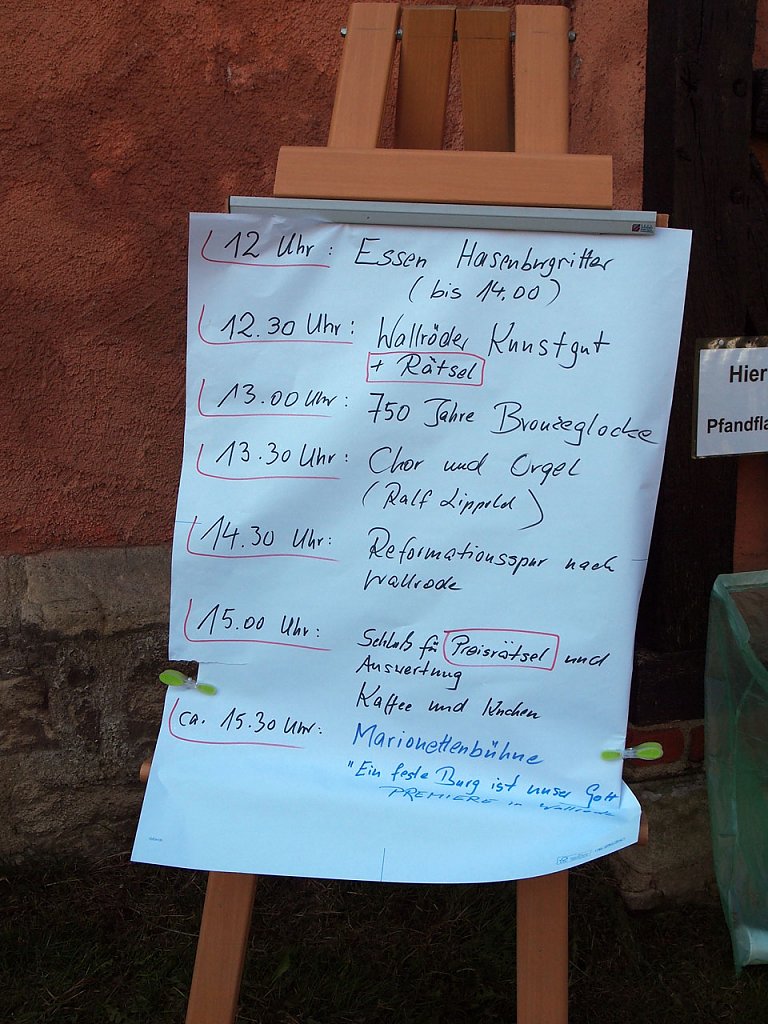 12 Uhr: Essen Hasenburgritter
(bis 14.00)
12.30 Uhr: Wallröder Kunstgut
+ Rätsel
13.00 Uhr: 750 Jahre Bronzeglocke
13.30 Uhr: Chor und Orgel
(Ralf Lippold)
14.30 Uhr: Reformationsspur nach
Wallrode
15.00 Uhr: Schluß für Preisrätsel und
Auswertung
Kaffee und Kuchen
ca. 15.30 Uhr: Marionettenbühne
"Ein feste Burg ist unser Gott
PREMIERE in Wallrode
Hier
Pfandfla